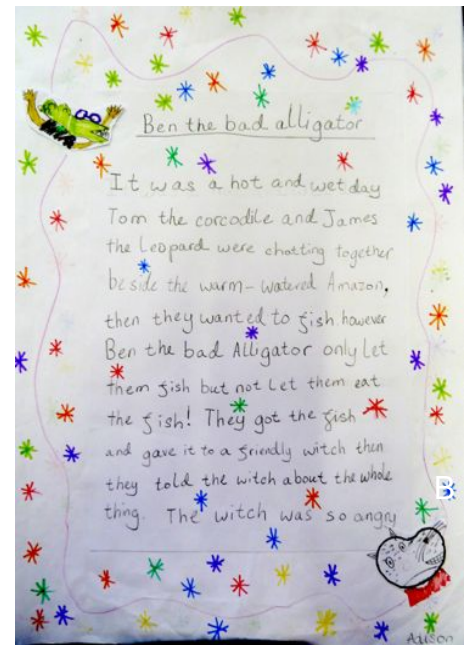 Ben the bad alligator
It was a hot and wet day
Tom the corcodile and James
the Leopard were chatting together
beside the warm-watered Amazon,
then they wanted to fish. however
Ben the bad Alligator only let
them fish but not Let them eat
the fish! They got the fish
and gave it to a friendly witch then
they told the witch about the whole
thing. The witch was so angry
B
Adison